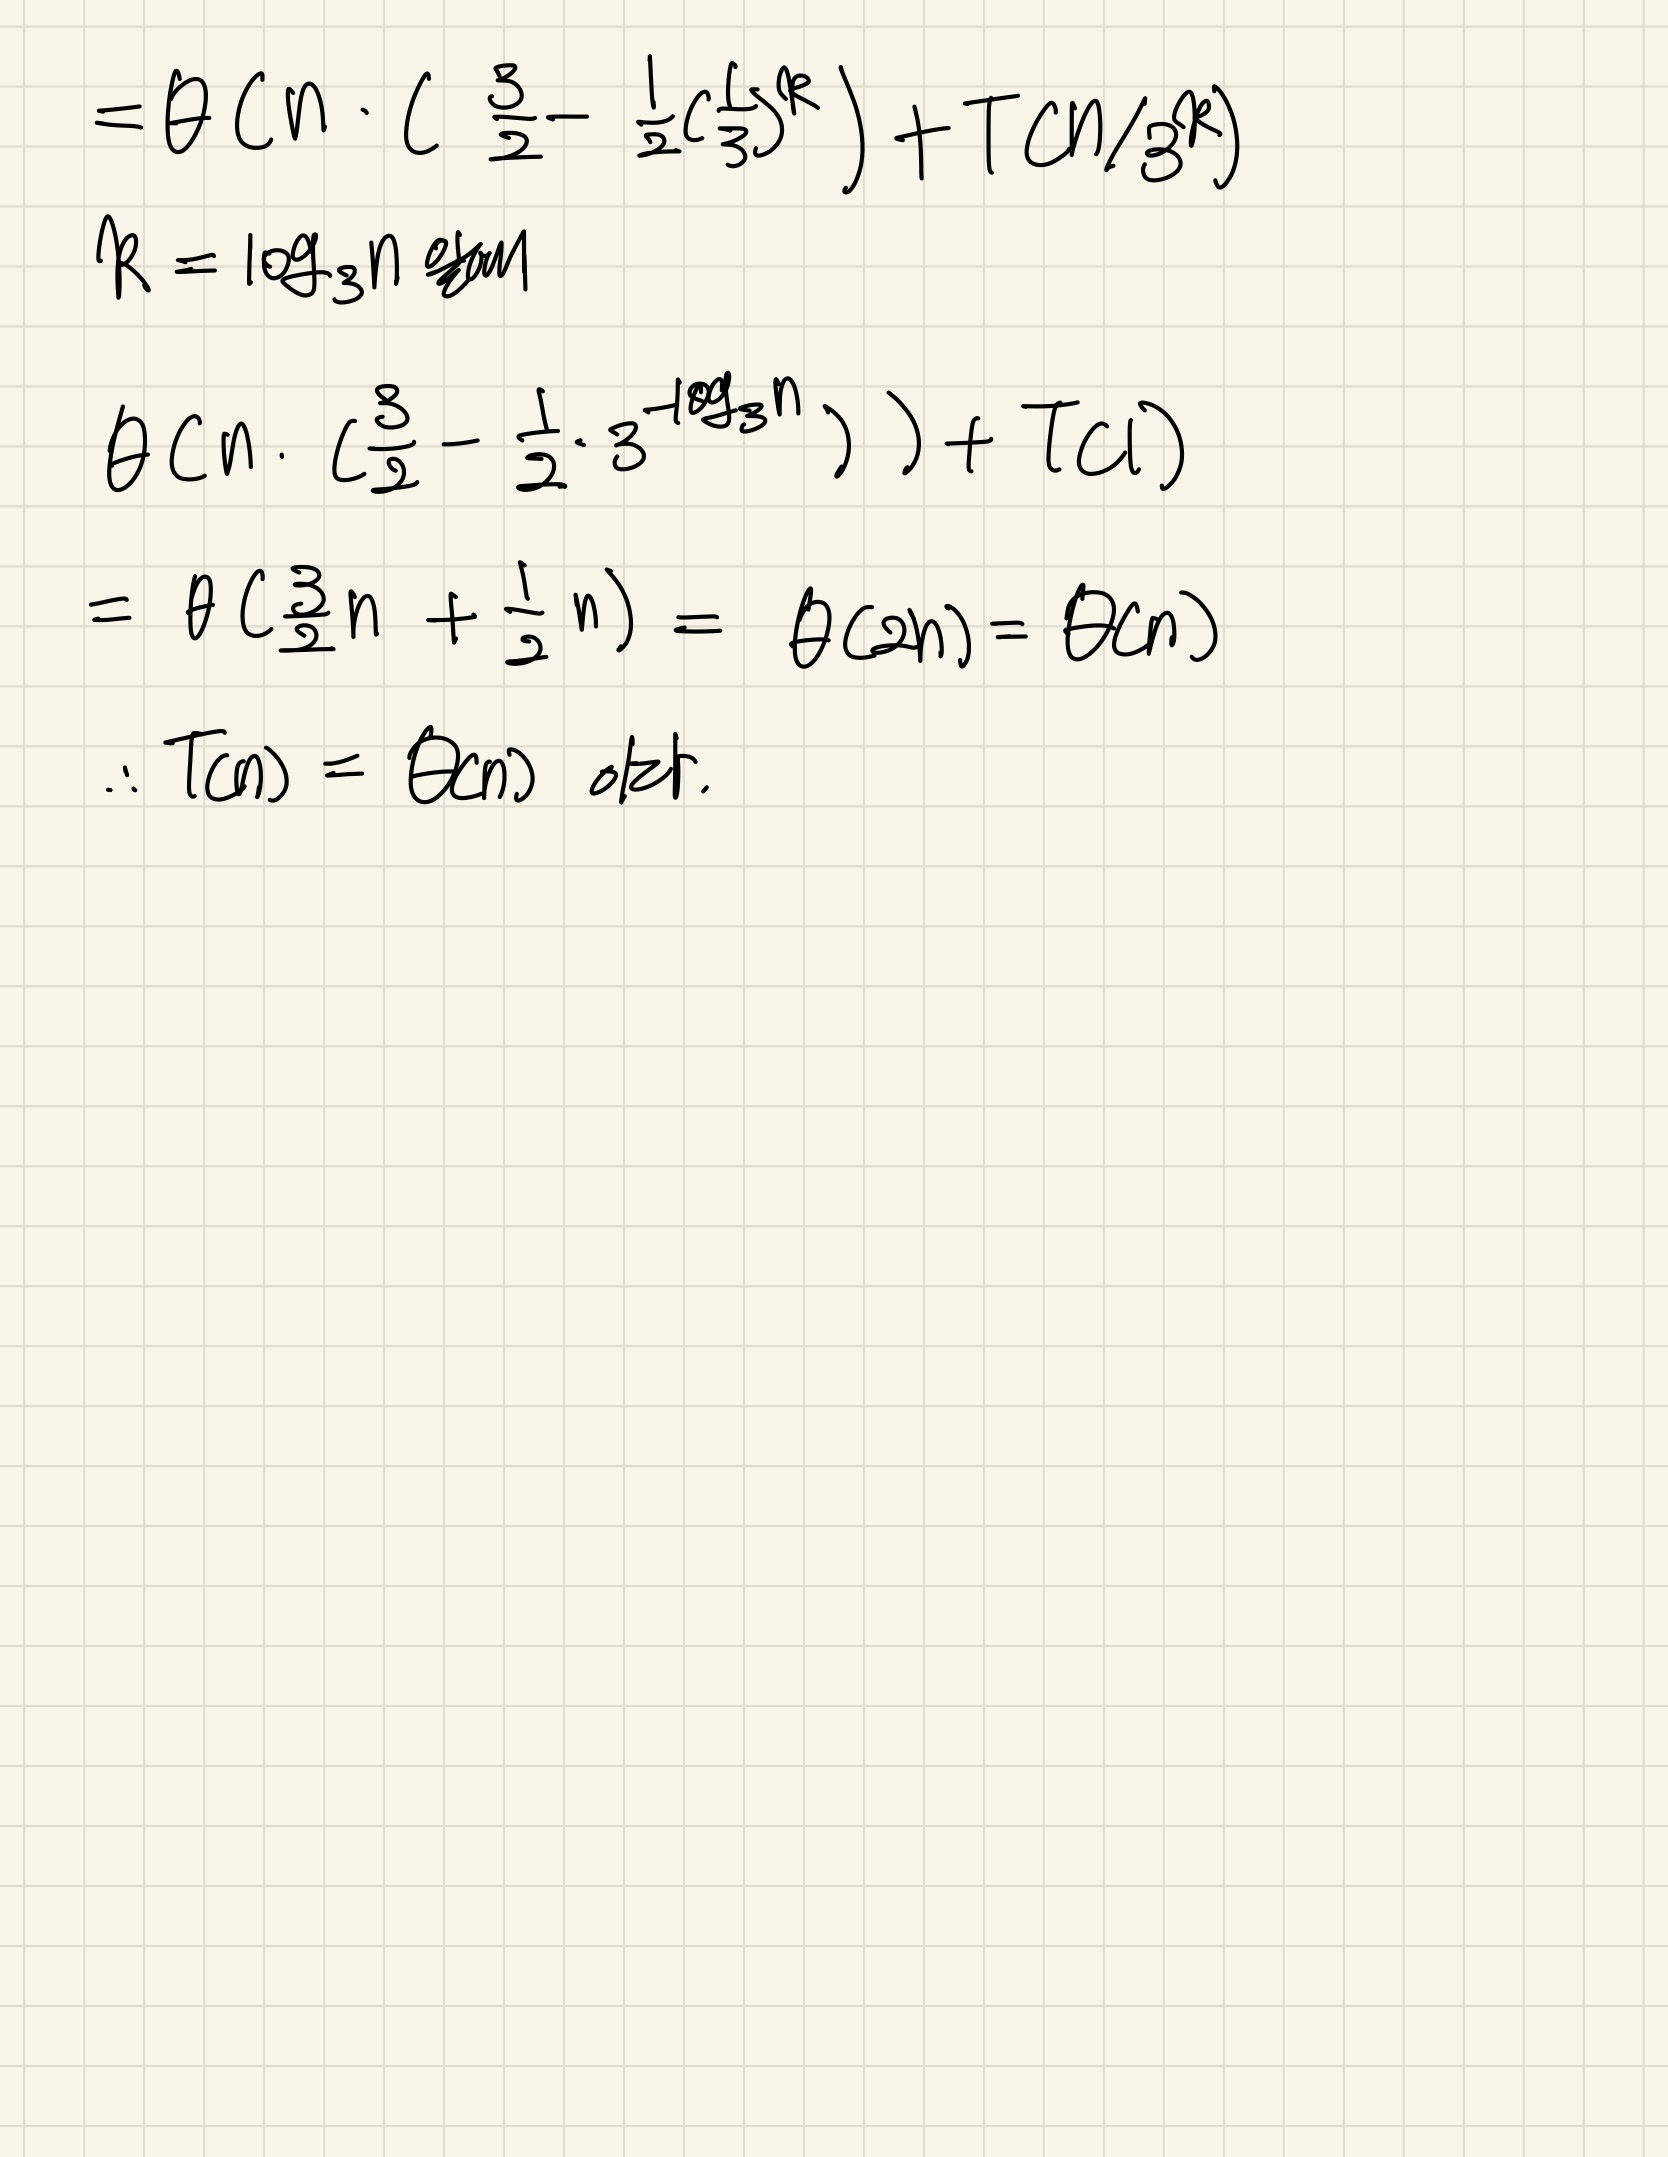 = θ(n · ( 3/2 - 1/2(1/3)^k ) + T(n/3^k)
k = log₃n
θ(n · (3/2 - 1/2 · 3^(-log₃n) ) ) + T(1)
= θ(3/2 n + 1/2 n) = θ(2n) = θ(n)
∴ T(n) = θ(n) 이다.